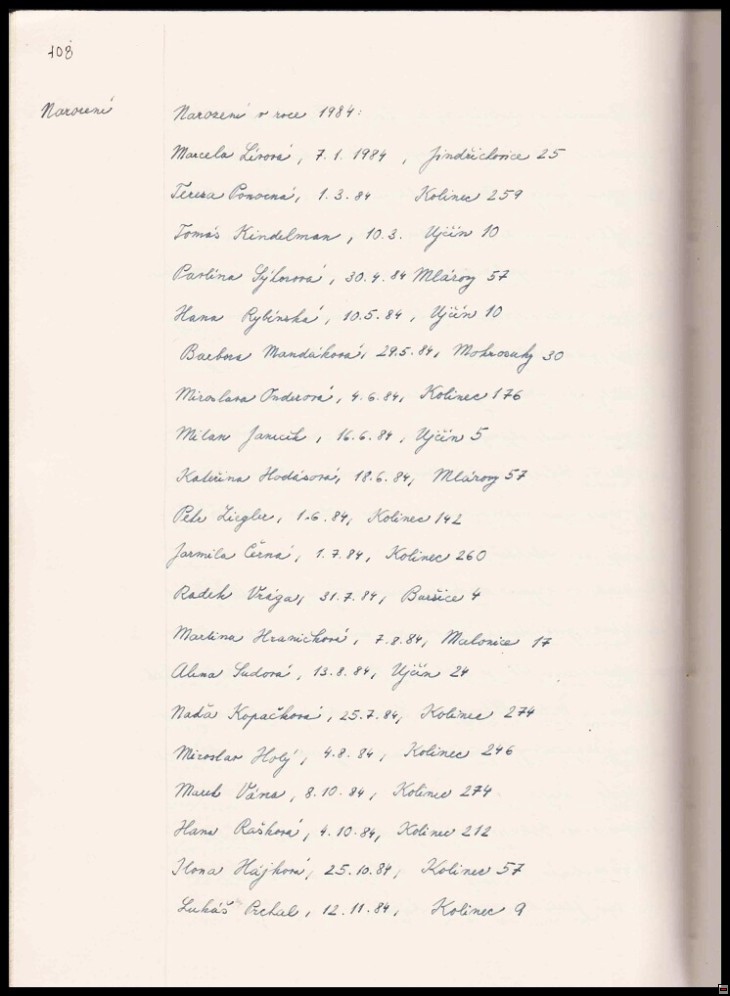 108
Narození
Narození v roce 1984:
Marcela Lívová, 7.1.1984, Jindřichovice 25
Tereza Ponocná, 1.3.84 Kolinec 259
Tomáš Kindelman, 10.3. Ujčín 10
Pavlína Sýkorová, 30.4.84 Mlázovy 57
Hana Rybínská, 10.5.84, Ujčín 10
Barbora Mandáková, 29.5.84, Mokrosuky 30
Miroslava Onderová, 4.6.84, Kolinec 176
Milan Janeček, 16.6.84, Ujčín 5
Kateřina Hodásová, 18.6.84, Mlázovy 57
Petr Ziegler, 1.6.84, Kolinec 142
Jarmila Černá, 1.7.84, Kolinec 260
Radek Vrága, 31.7.84, Boršice 4
Martina Hraničková, 7.8.84, Malonice 17
Alena Sudová, 13.8.84, Ujčín 24
Naďa Kopačková, 25.7.84, Kolinec 274
Miroslav Holý, 4.8.84, Kolinec 246
Marek Vána, 8.10.84, Kolinec 274
Hana Rašková, 4.10.84, Kolinec 212
Ilona Hájková, 25.10.84, Kolinec 57
Lukáš Prchal, 12.11.84, Kolinec 9